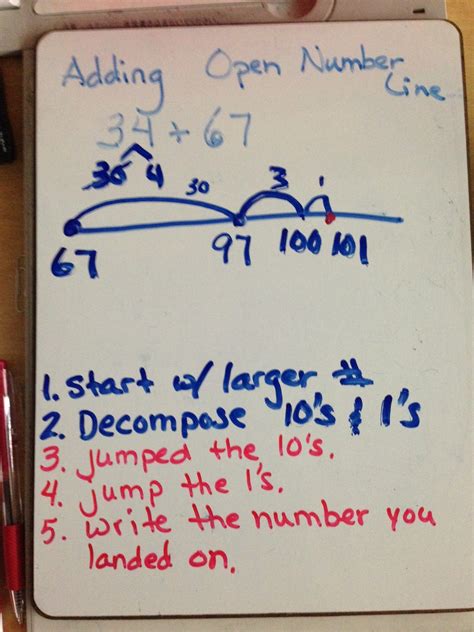 Adding Open Number
Line
34 + 67
30 4
30 3 1
67 97 100 101
1. Start w/ larger #
2. Decompose 10's & 1's
3. jumped the 10's.
4. jump the 1's.
5. write the number you
landed on.